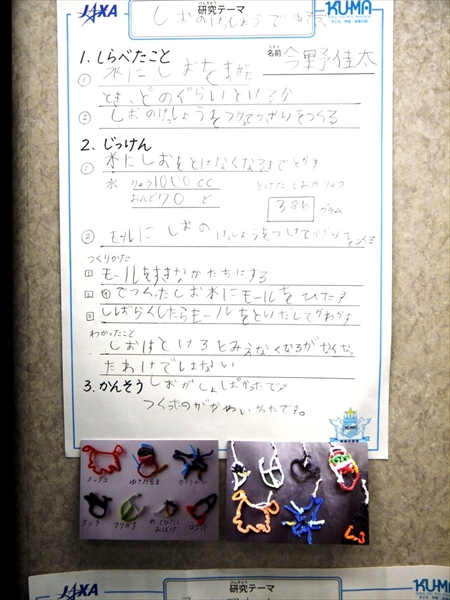 JAXA
研究テーマ
KUMA
しおのけっしょうで
名前 今野佳太
1. しらべたこと
① 水にしおをまぜた
とき、どのぐらいとけるか
② しおのけっしょうをつかってかざりをつくる
2. じっけん
① 水にしおをとけなくなるまでとかす
水 りょう1000cc とけたしおのりょう
おんど70ど 380グラム
② モールにしおのけっしょうをつけてかざりをつくる
つくりかた
1 モールをすきなかたちにする
2 ①でつくったしお水にモールをひたす
3 しばらくしたらモールをとりだしてかわかす
わかったこと
しおはとけるとみえなくなるがなくなっ
たわけではない
3. かんそう しおがしょっぱかったです
つくったのがかわいかったです。
ゆきだるま
クワガタ
おばけ
JAXA
研究テーマ
KUMA